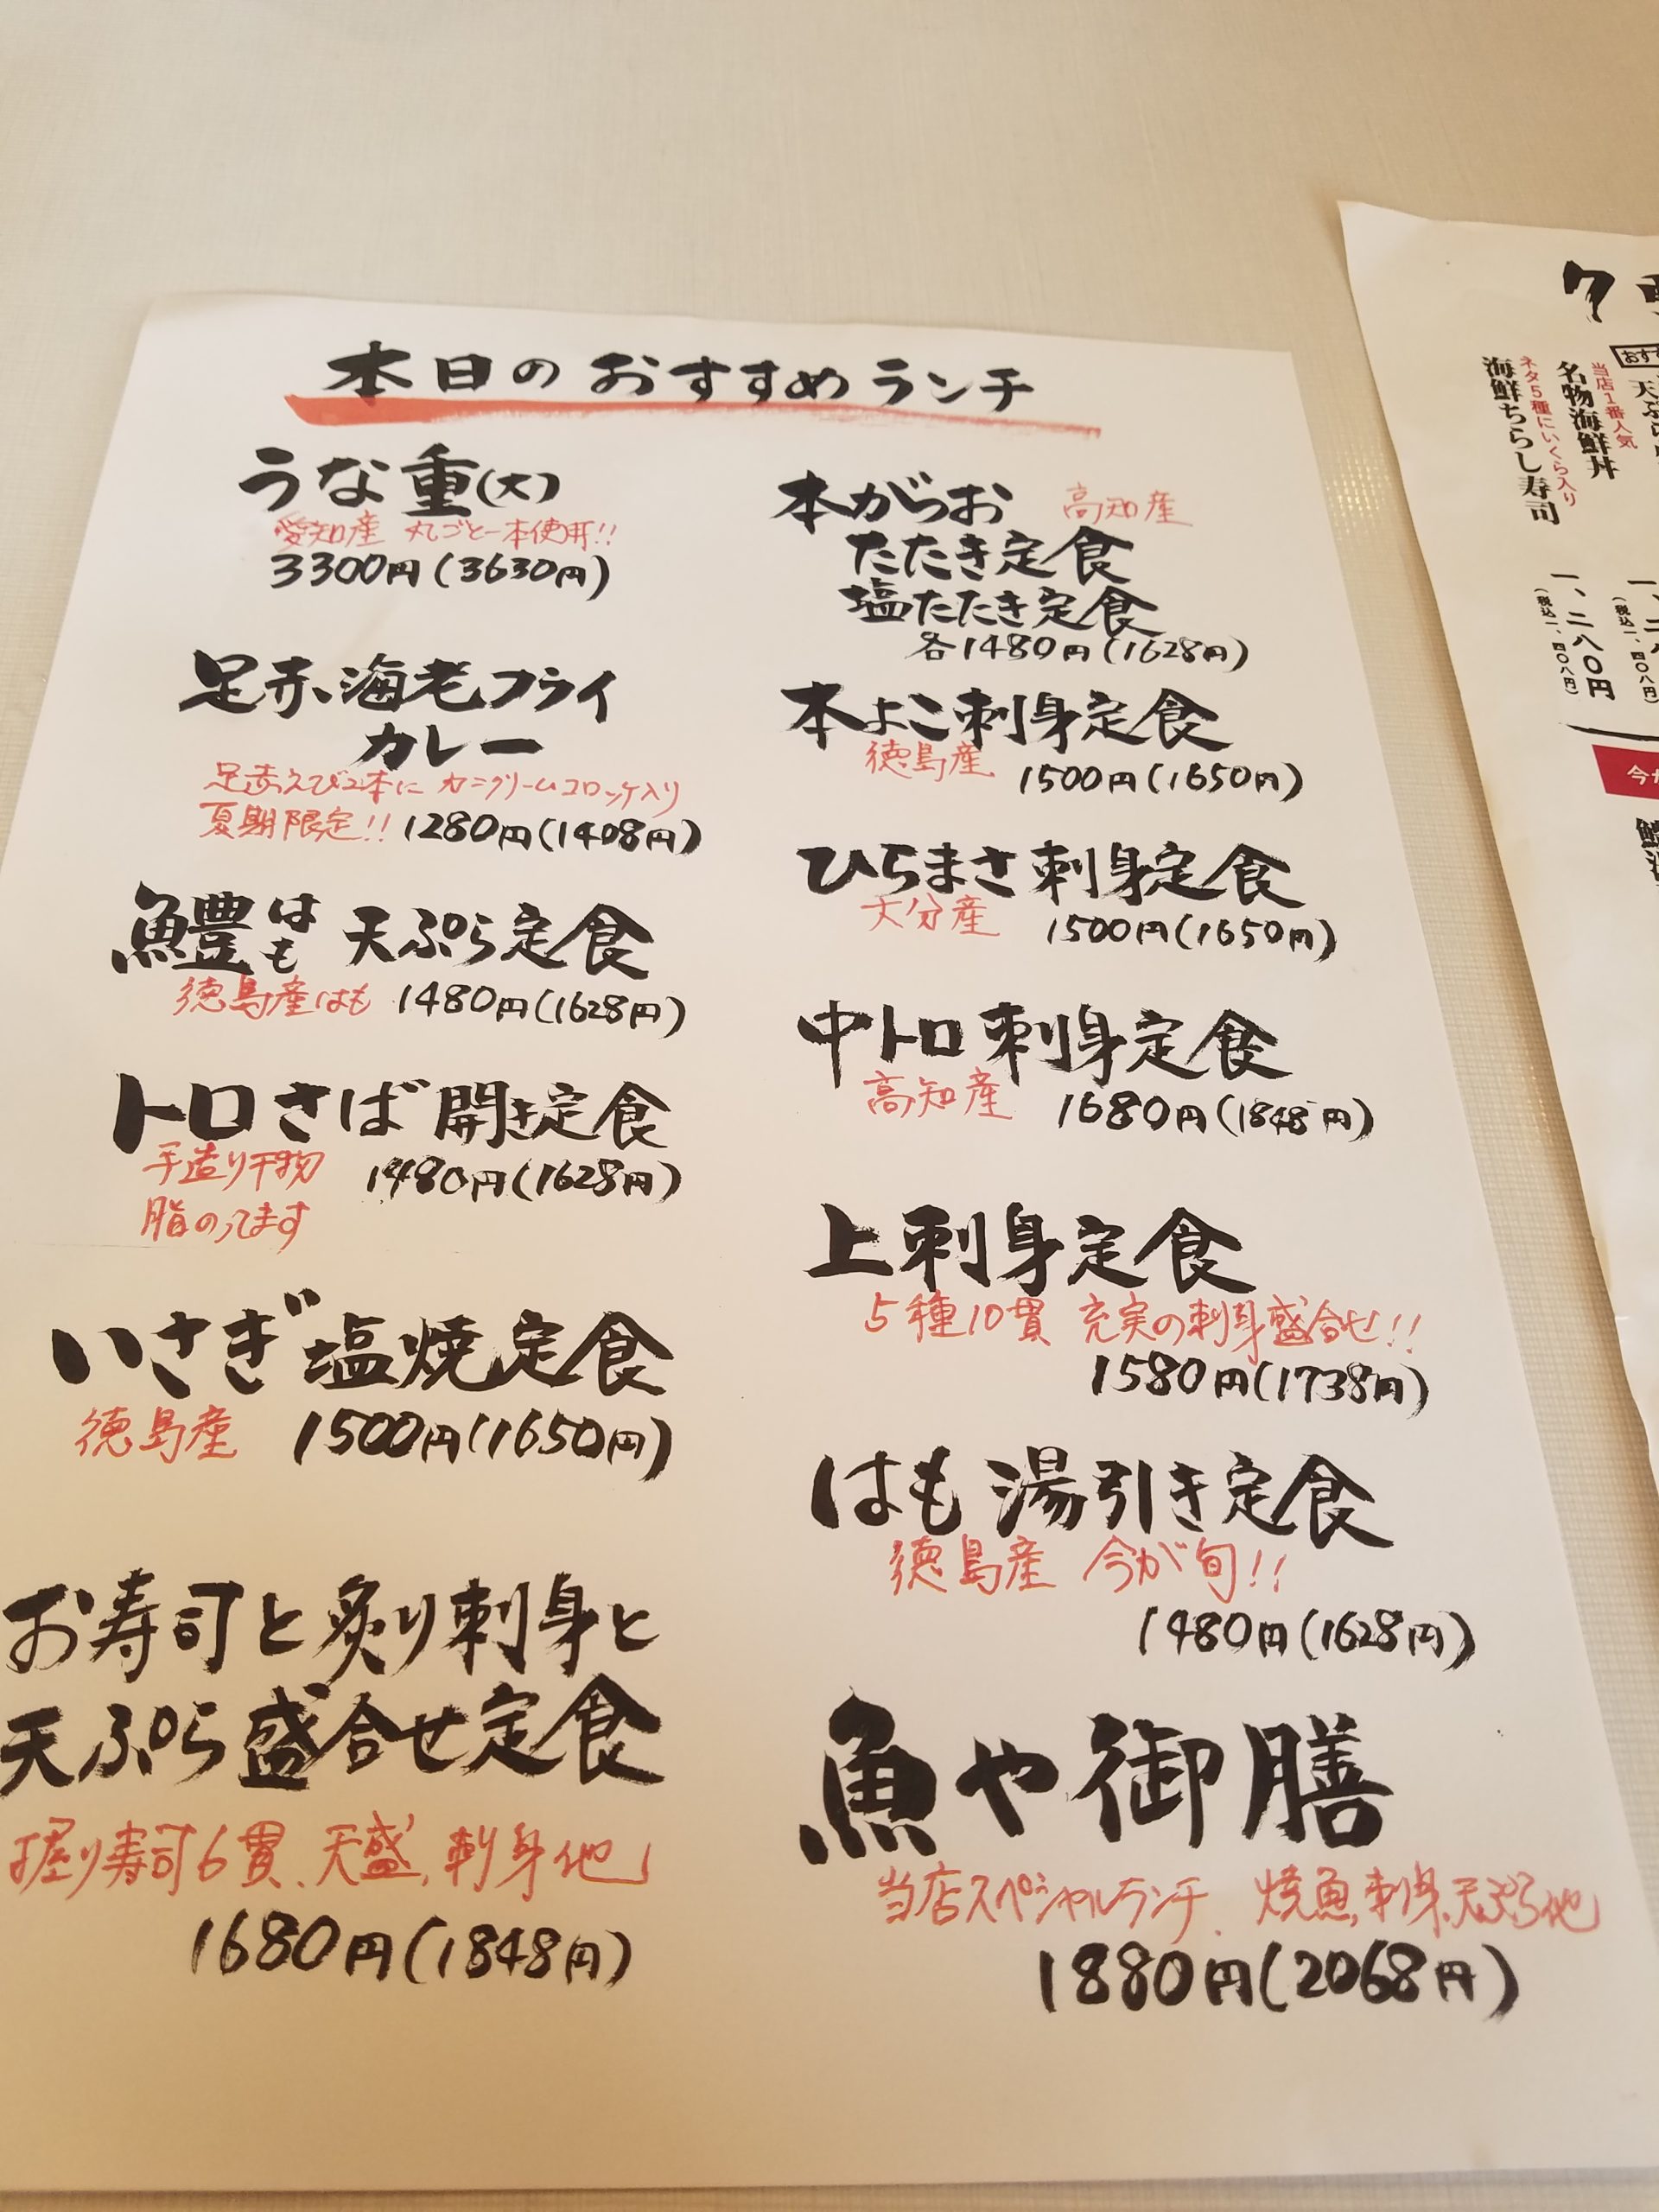 本日のおすすめランチ
うな重(大)
愛知産 丸ごと一本使用!!
3300円(3630円)
足赤海老フライ
カレー
足赤えび2本に カニクリームコロッケ入り
夏期限定!! 1280円(1408円)
鱧はも 天ぷら定食
徳島産はも 1480円(1628円)
トロさば開き定食
手造り干物 1480円(1628円)
脂のってます
いさぎ塩焼定食
徳島産 1500円(1650円)
お寿司と炙り刺身と
天ぷら盛合せ定食
握り寿司6貫、天盛、刺身他
1680円(1848円)
本がつお 高知産
たたき定食
塩たたき定食
各1480円(1628円)
本よこ刺身定食
徳島産 1500円(1650円)
ひらまさ刺身定食
大分産 1500円(1650円)
中トロ刺身定食
高知産 1680円(1848円)
上刺身定食
5種10貫 充実の刺身盛合せ!!
1580円(1738円)
はも湯引き定食
徳島産 今が旬!!
1480円(1628円)
魚や御膳
当店スペシャルランチ、焼魚,刺身,天ぷら他
1880円(2068円)
おすす
当店1番人気
名物海鮮丼
ネタ5種にいくら入り
海鮮ちらし寿司
一、二八〇円
(税込一、四〇八円)